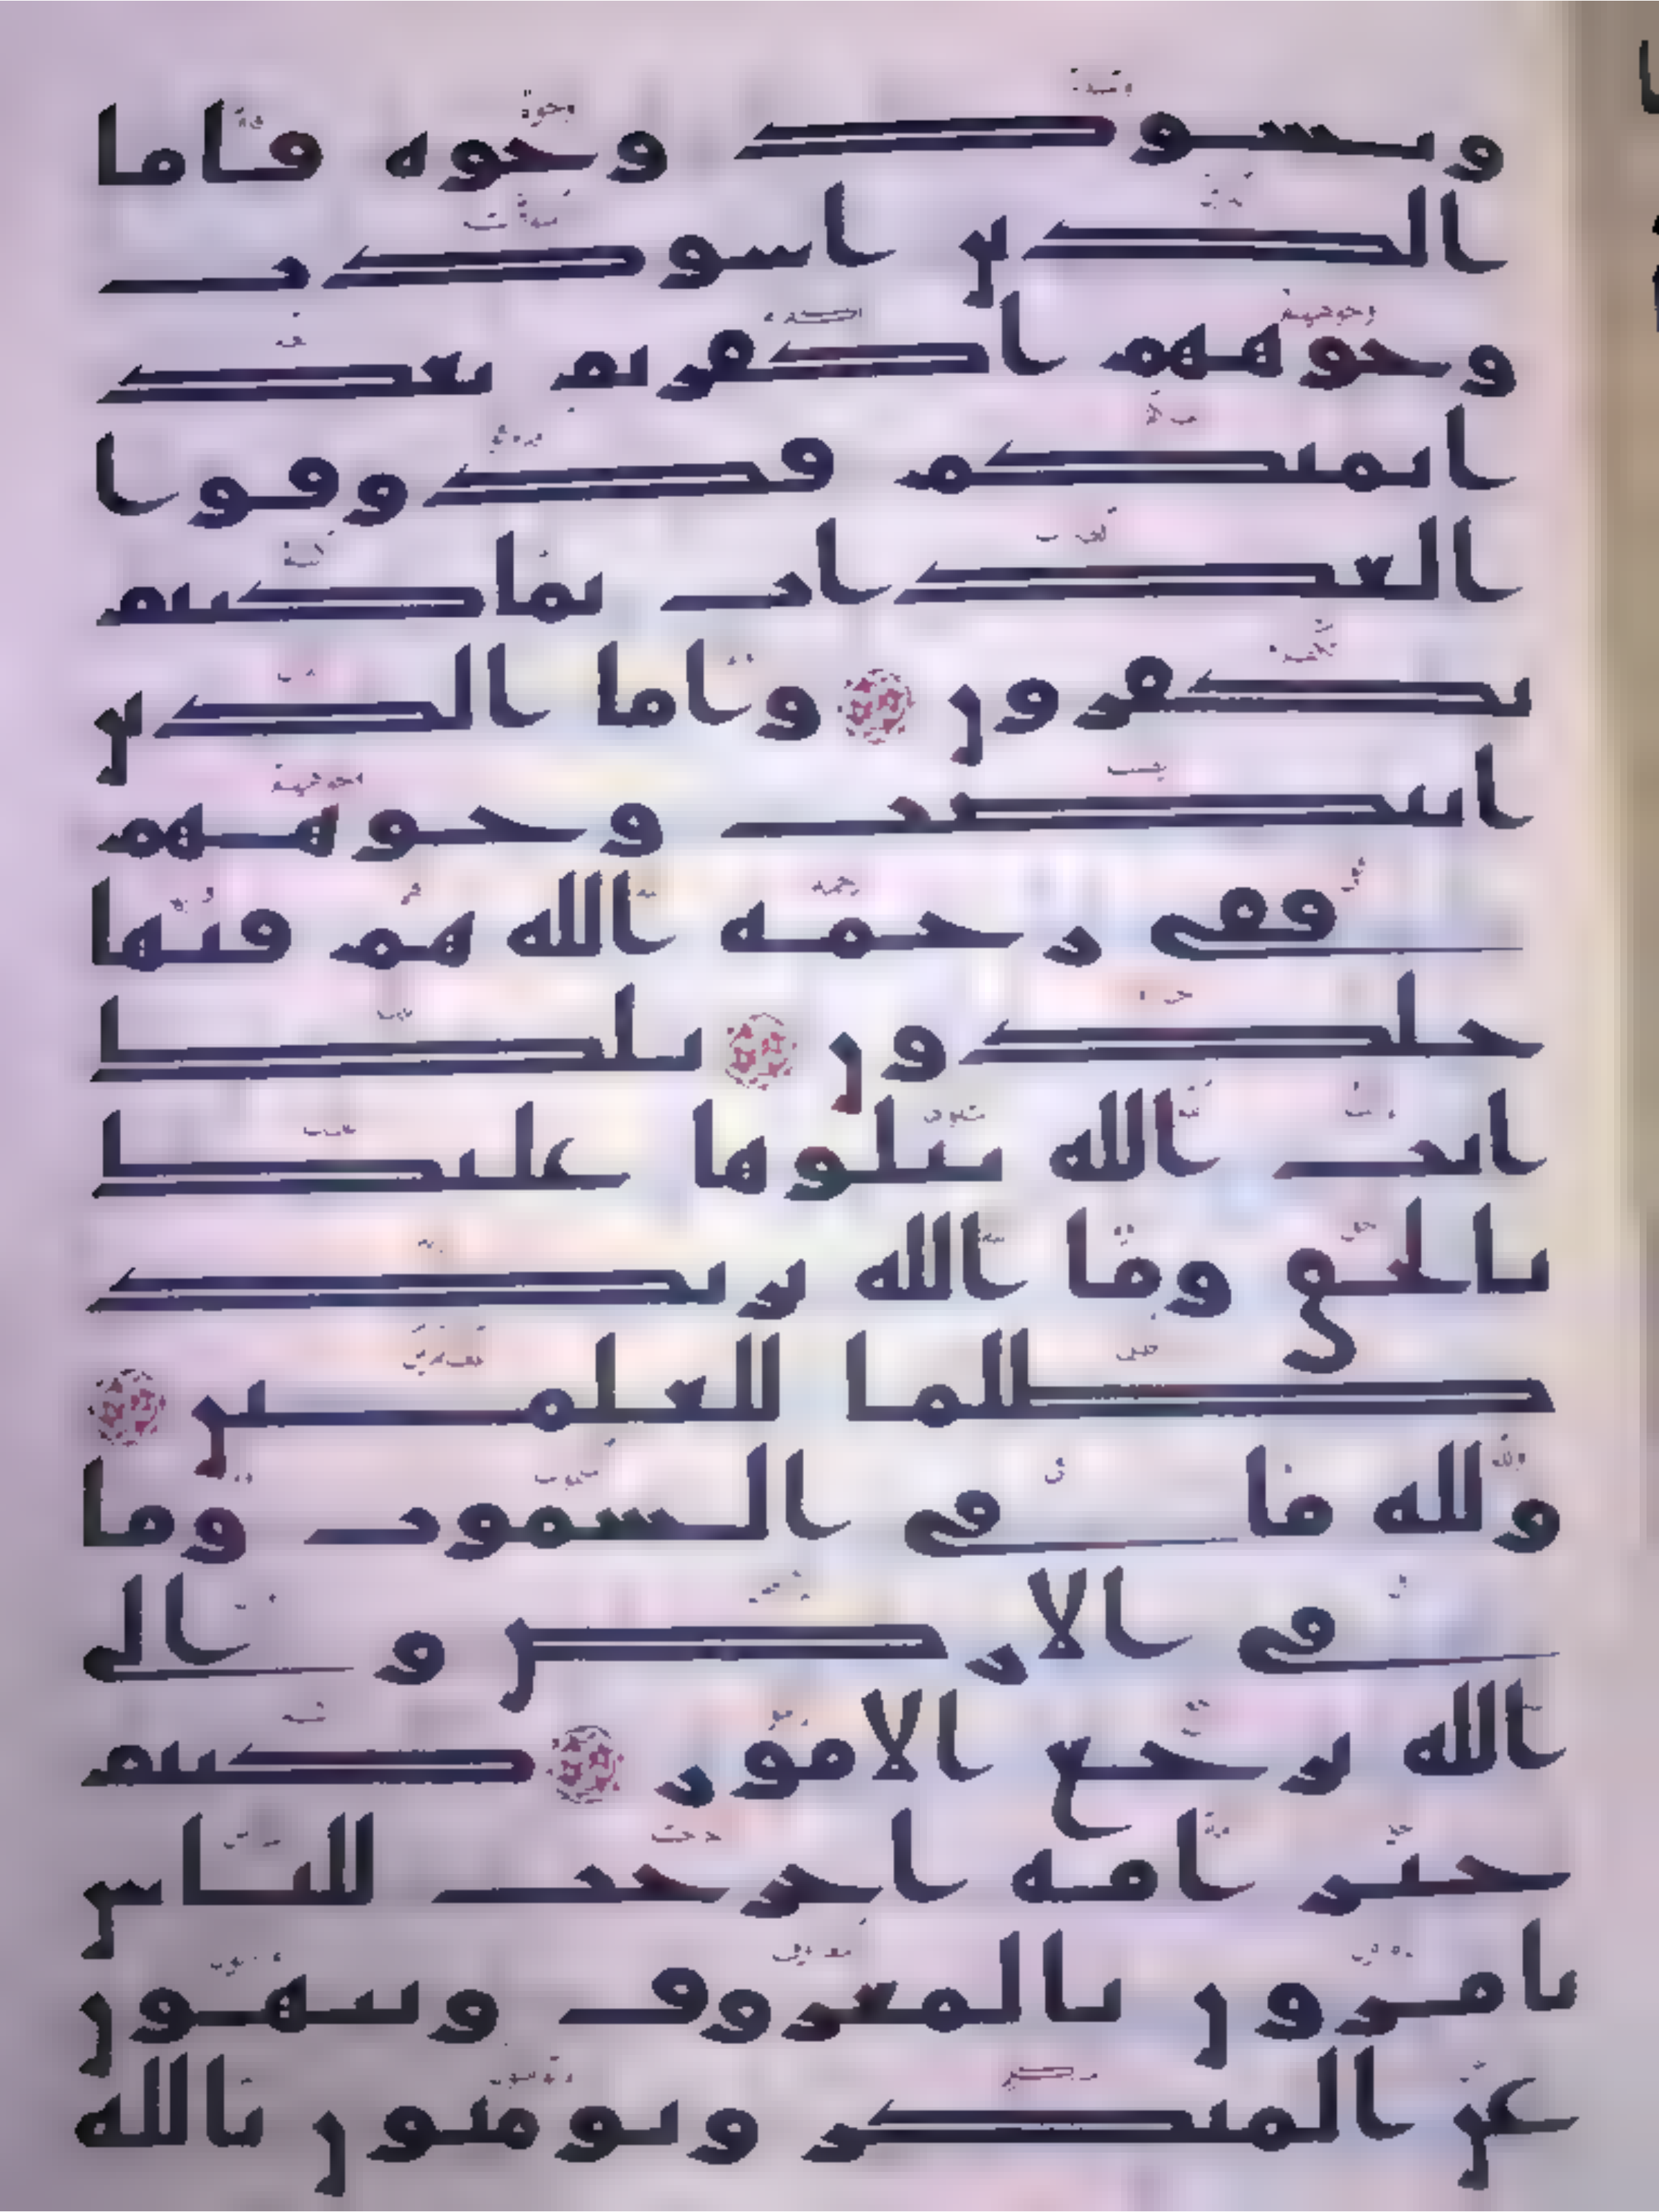 وتسود وجوه فاما
الذين اسودت
وجوههم اكفرتم بعد
ايمنكم فذوقوا
العذاب بما كنتم
تكفرون واما الذين
ابيضت وجوههم
ففي رحمة الله هم فيها
خلدون تلك
ايت الله نتلوها عليك
بالحق وما الله يريد
ظلما للعلمين
ولله ما في السموت وما
في الارض و الى
الله ترجع الامور كنتم
خير امة اخرجت للناس
تامرون بالمعروف وتنهون
عن المنكر وتومنون بالله